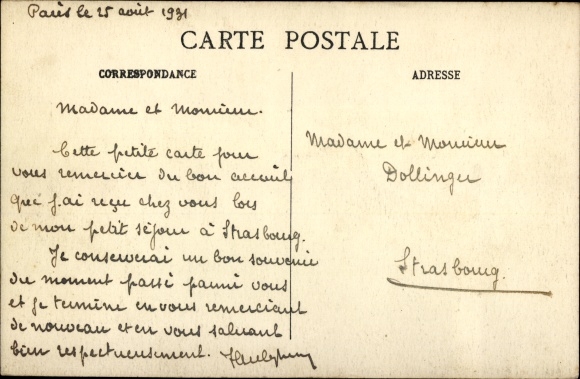 Paris le 25 août 1931
CARTE POSTALE
CORRESPONDANCE
ADRESSE
Madame et Monsieur.
Cette petite carte pour
vous remercier du bon acceuil
que j.ai reçu chez vous lors
de mon petit séjour à Strasbourg.
Je conserverai un bon souvenir
du moment passé parmi vous
et je termine en vous remerciant
de nouveau et en vous saluant
bien respectueusement.
Madame et Monsieur
Dollinger
Strasbourg.